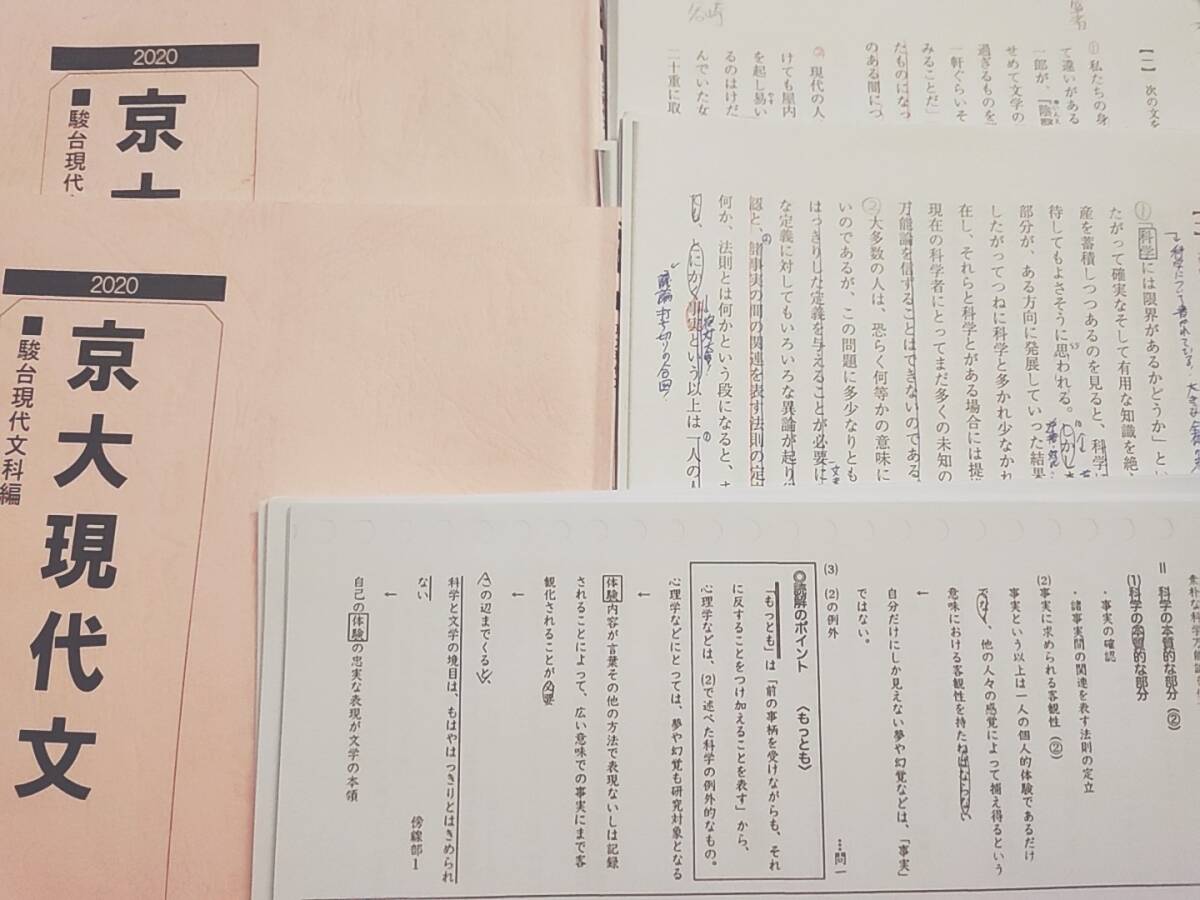 2020
京大
■駿台現代
2020
京大現代文
■駿台現代文科編
【一】 次の文を
① 私たちの身
て違いがある
一郎が、『陰翳
せめて文学の
過ぎるものを
一軒ぐらいそ
みることだ」
たものになっ
のある間につ
② 現代の人
けても屋内
を起し易い
るのはけだ
んでいたな
二十重に取
科学について書かれている。
① 「科学には限界があるかどうか」とい
たがって確実なそして有用な知識を絶
産を蓄積しつつあるのを見ると、科学に
待してもよさそうに思われる。しかし
部分が、ある方向に発展していった結果
したがってつねに科学と多かれ少なかれ
在し、それらと科学とがある場合には提
現在の科学者にとってまだ多くの未知の
万能論を信ずることはできないのである。
② 大多数の人は、恐らく何等かの意味に
いのであるが、この問題に多少なりとも
はっきりした定義を与えることが必要に
な定義に対してもいろいろな異論が起り得
認と、諸事実の間の関連を表す法則の定
何か、法則とは何かという段になると、
でも、とにかく事実という以上は一人の
議論打ち切りの合図
素朴な科学万能論
= 科学の本質的な部分(②)
(1)科学の本質的な部分
・事実の確認
・諸事実間の関連を表す法則の定立
(2)事実に求められる客観性(②)
事実という以上は一人の個人的体験であるだけ
でなく、他の人々の感覚によって捕え得るという
意味における客観性を持たねばならない
←
自分だけにしか見えない夢や幻覚などは、「事実」
ではない。
……問一
(3) (2)の例外
◎読解のポイント 〈もっとも〉
「もっとも」は「前の事柄を受けながらも、それ
に反することをつけ加えることを表す」から、
心理学などは、(2)で述べた科学の例外的なもの。
心理学などにとっては、夢や幻覚も研究対象となる
←
体験内容が言葉その他の方法で表現ないしは記録
されることによって、広い意味での事実にまで客
観化されることが必要
←
この辺までくると、
科学と文学の境目は、もはやはっきりとはきめられ
ない
傍線部1
←
自己の体験の忠実な表現が文学の本領